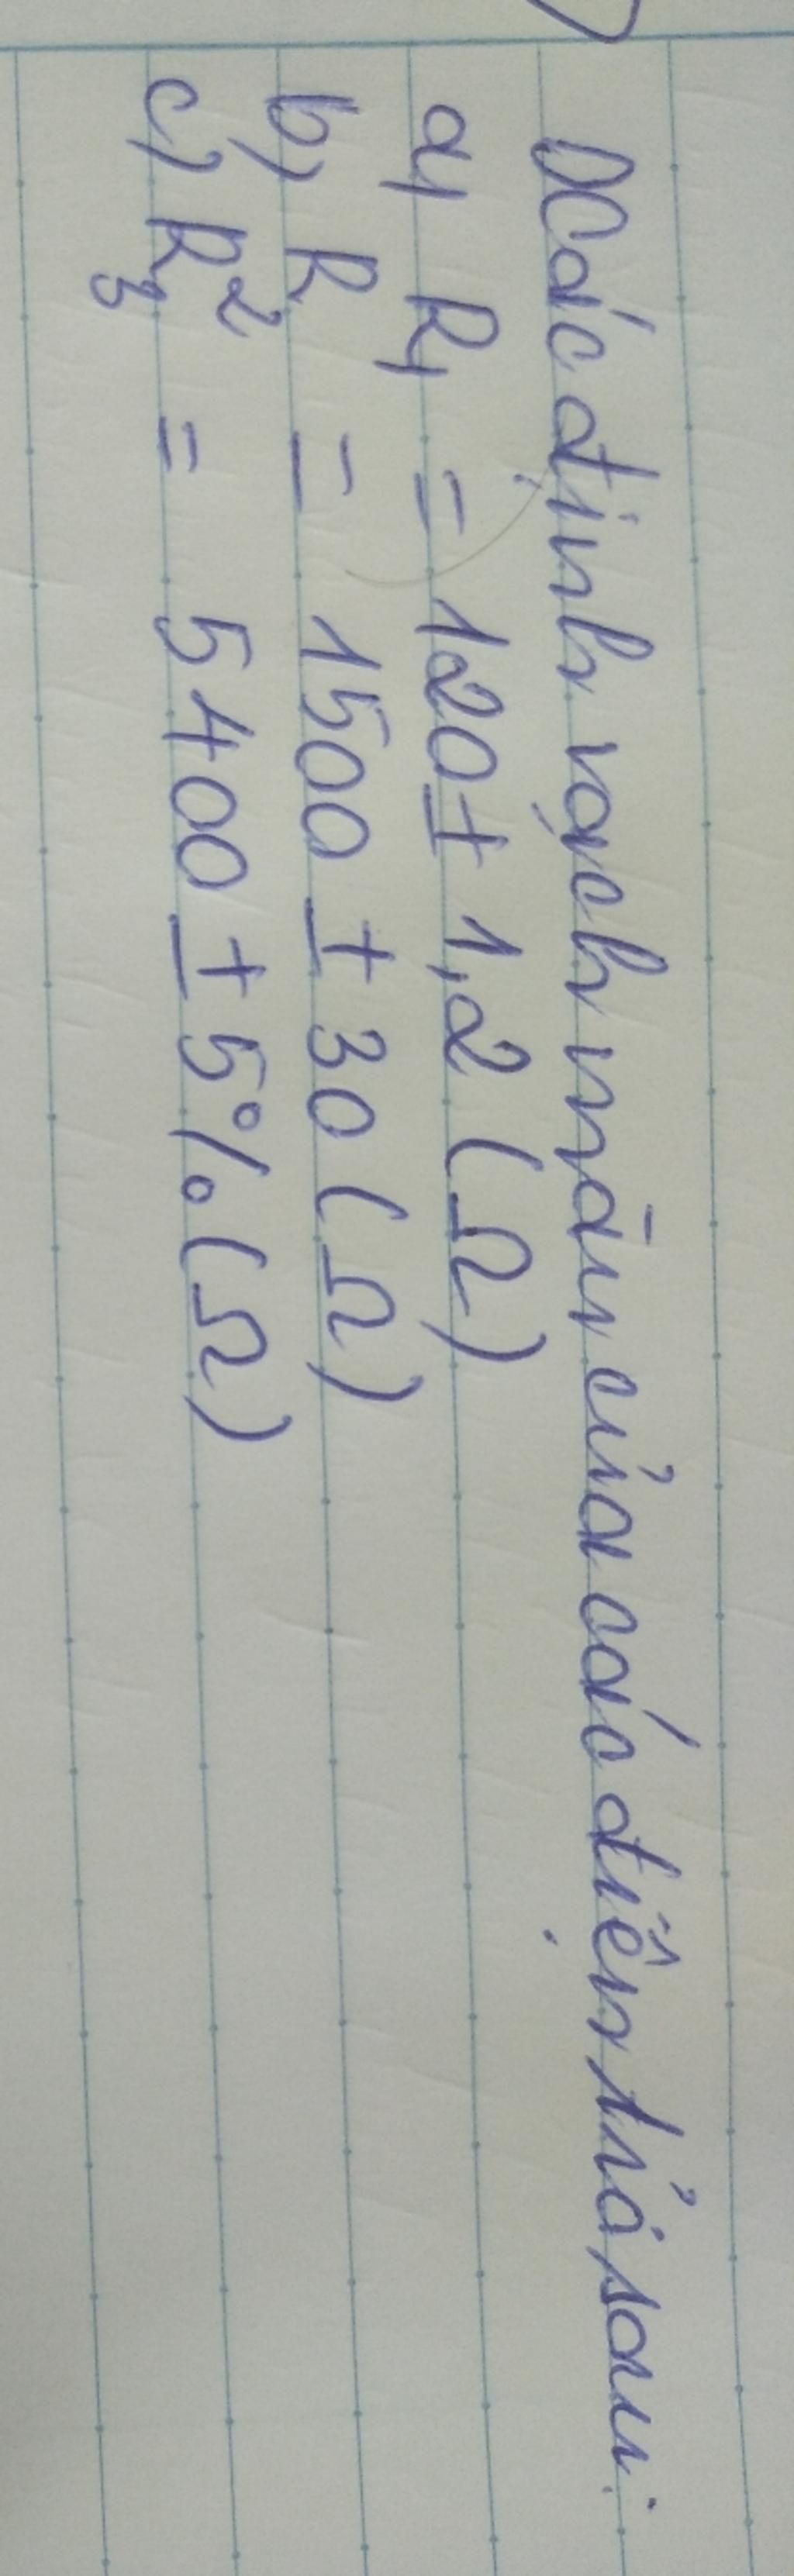 Xác định vạch màu của các điện trở sau:
a, R1 = 120 ± 1,2 (Ω)
b, R2 = 1500 ± 30 (Ω)
c) R3 = 5400 ± 5% (Ω)